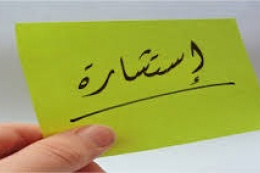 إستشارة